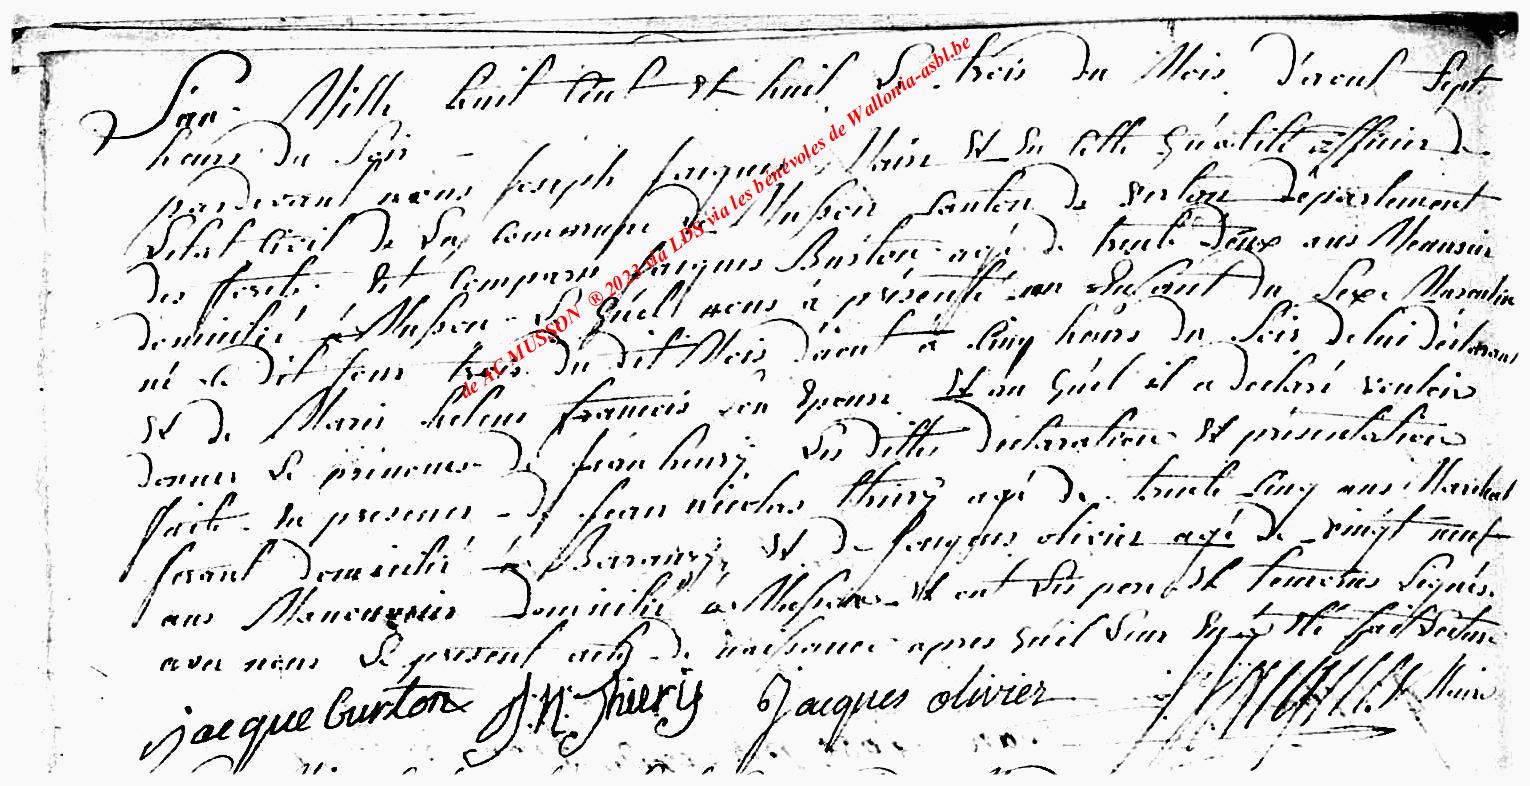 L'an Mille huit Cent et huit Le trois du Mois d'aout Sept
heurs du Soir - 
pardevant nous Joseph Jacques Maire et en Cette Qualité officier de
L'etat Civil de La commune de Musson Canton de Virton Département
des forêts. Est comparu Jacques Burton agé de trente Deux ans Manouvrier
domicilié à Musson Le Quel nous à présenté un Enfant du Sexe Masculin
né Le dit Jour trois du dit Mois d'aout à Cinq heurs du Soir de lui déclarant
et de Marie helene francois Son Epouse et au Quel il a declaré vouloir
donner Le prenoms de Jean henry Les dittes declaration et présentation
faite En presence de Jean nicolas thiery agé de trente Cinq ans Marechal
ferant domicilié à Baranzy et de Jacques olivier agé de vingt neuf
ans Manouvrier domicilié à Musson et ont Les pere et temoins Signés
avec nous Le present acte de naissance apres Qu'il Leur En à Eté fait Lecture
jacque burton J.N. Thiery Jacques olivier Maire
de AC MUSSON ® 2023 via LDS via les bénévoles de Wallonia-asbl.be